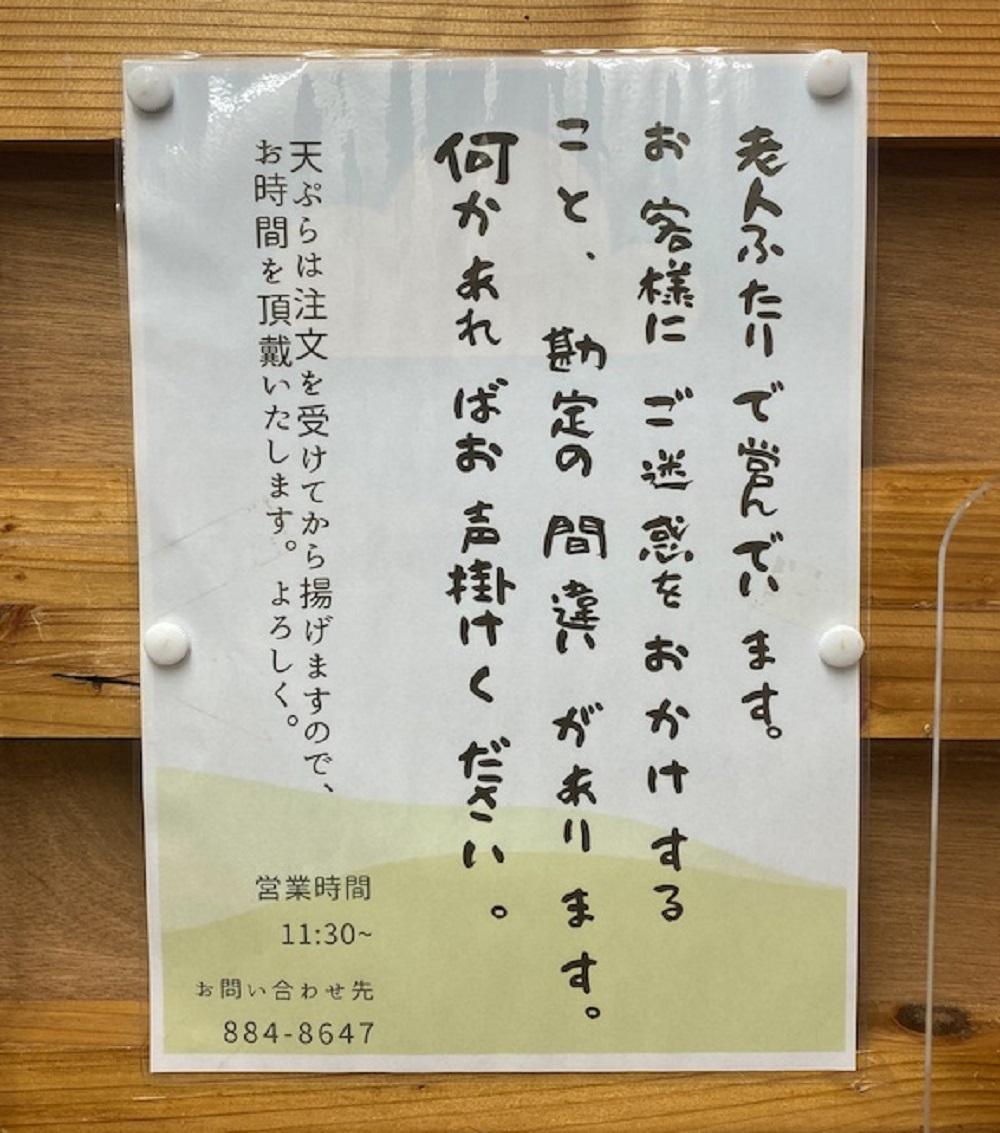 老人ふたりで営んでいます。
お客様にご迷惑をおかけする
こと、勘定の間違いがあります。
何かあればお声掛けください。
天ぷらは注文を受けてから揚げますので、
お時間を頂戴いたします。よろしく。
営業時間
11:30~
お問い合わせ先
884-8647